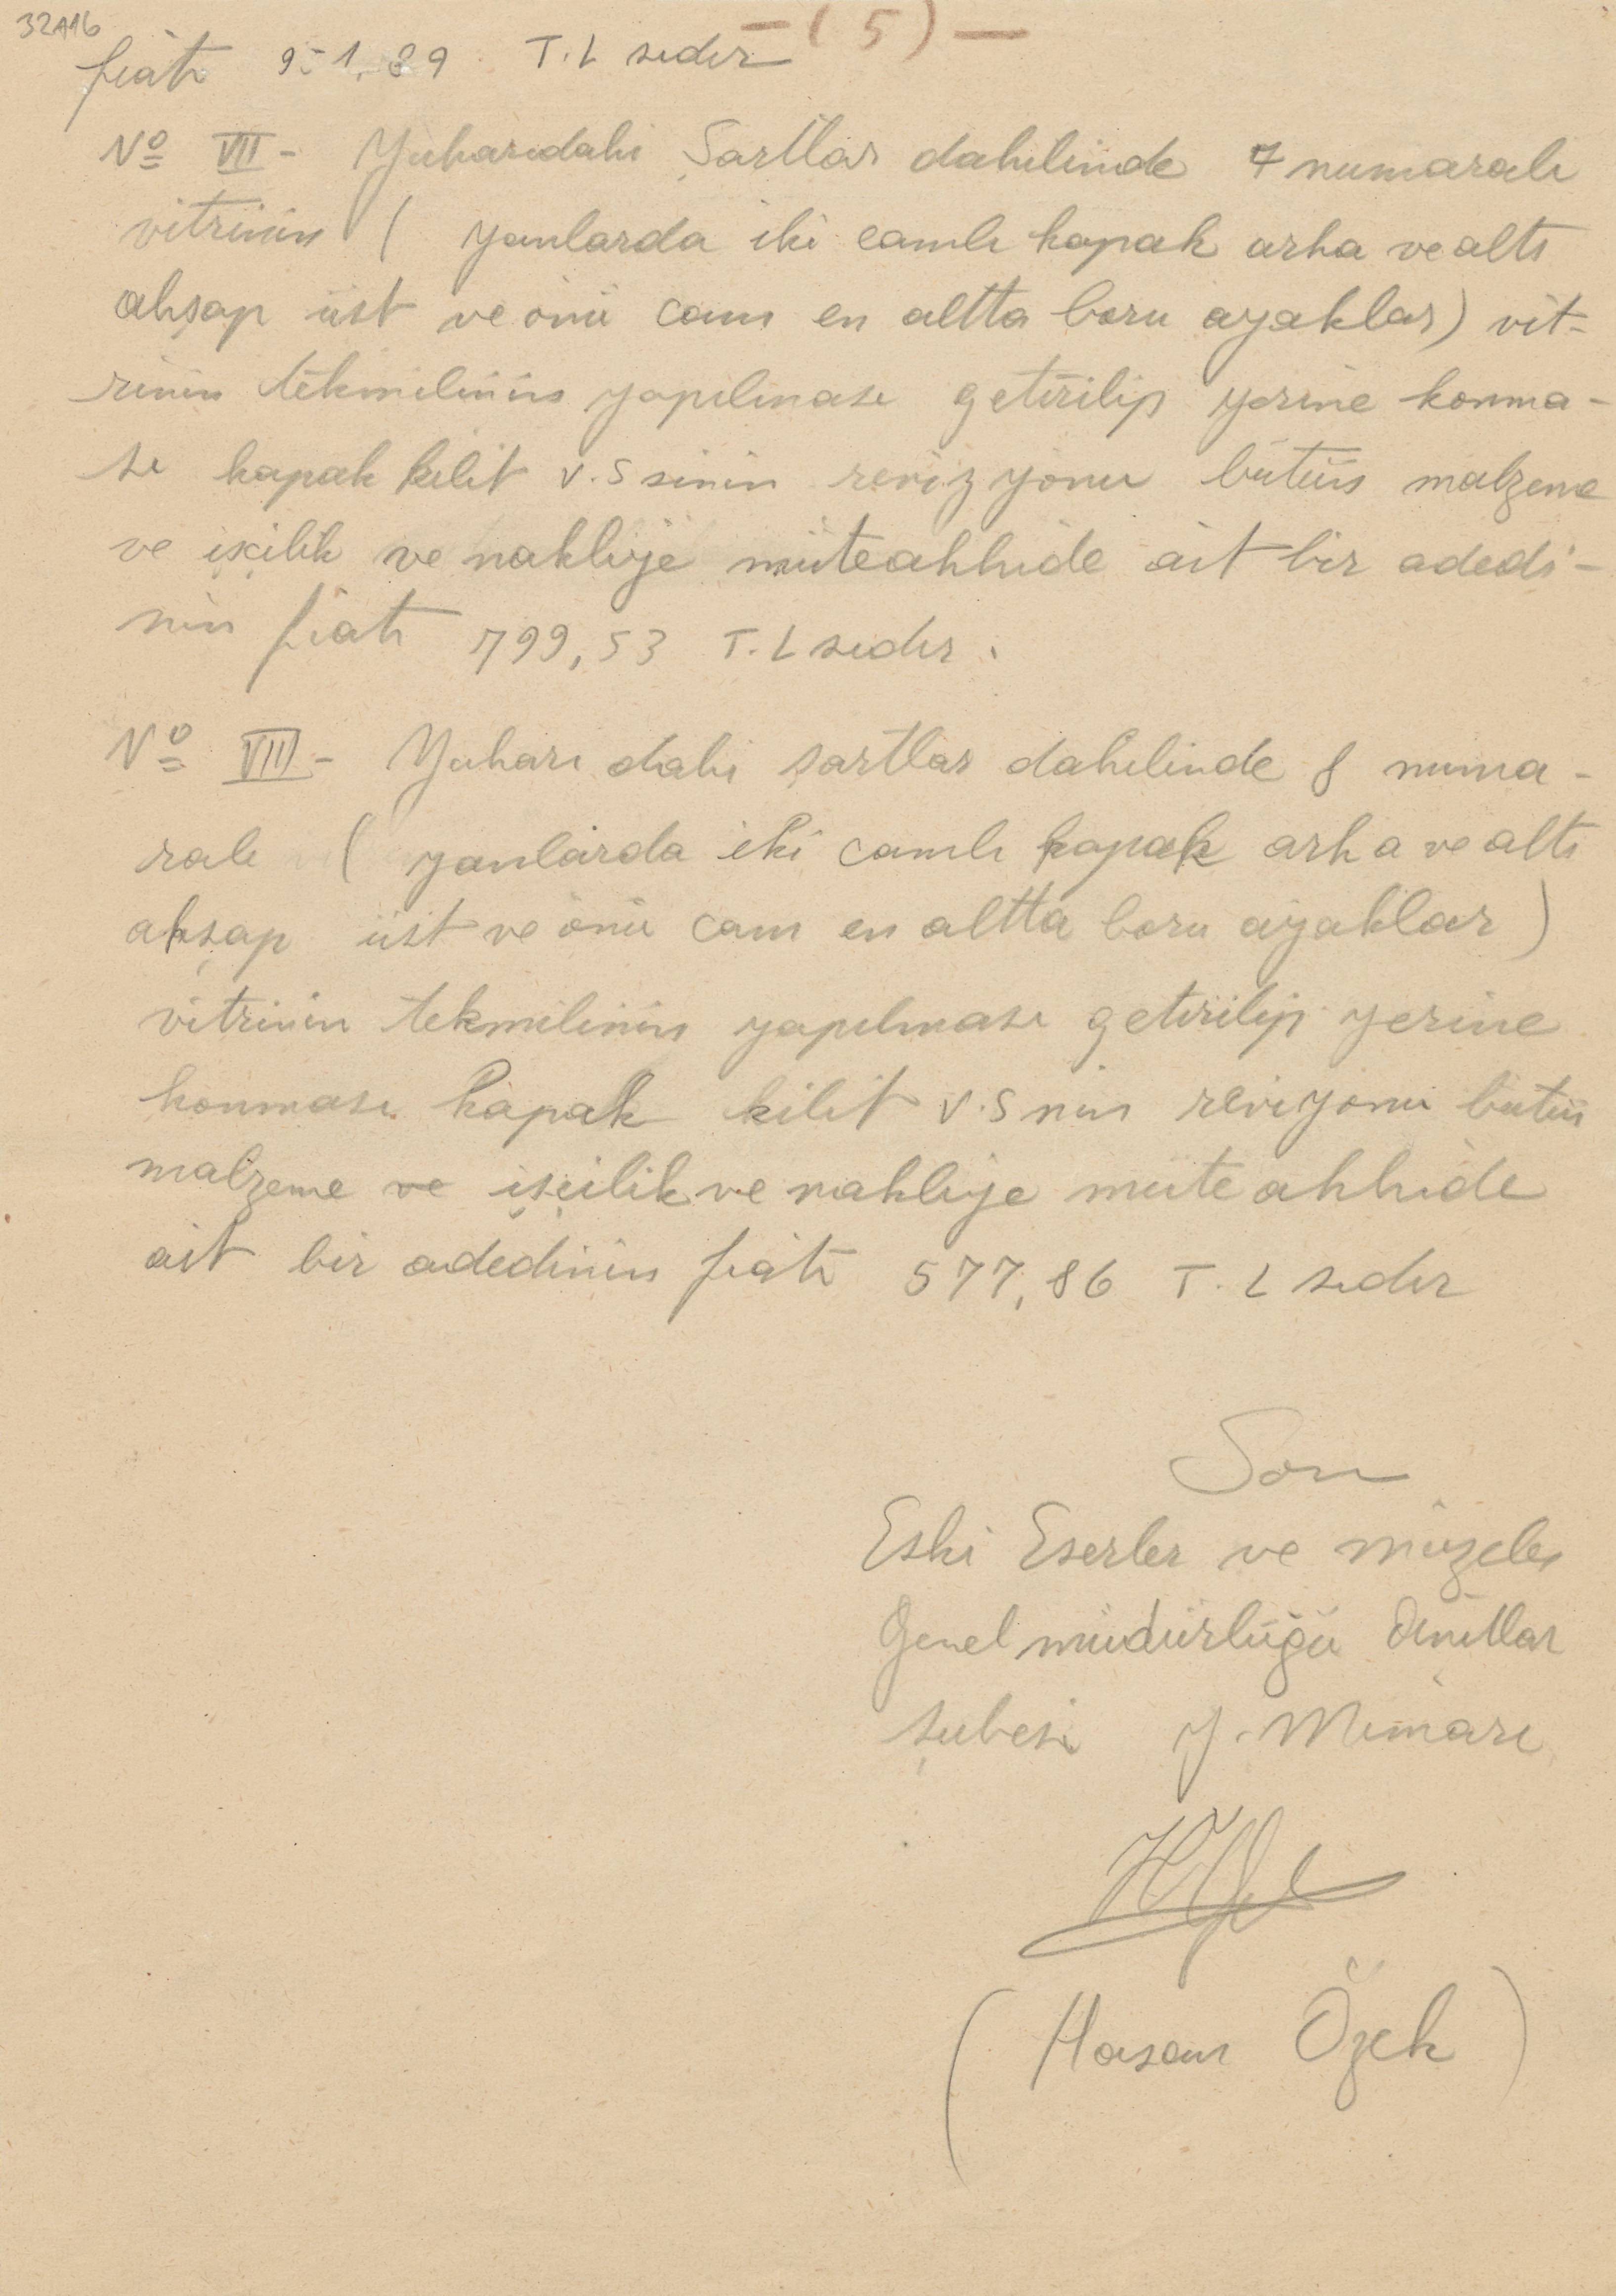 32A16
— ( 5 ) —
fiatı 951,89 T.L sıdır
Nº VII - Yukarıdaki Şartlar dahilinde 7 numaralı
vitrinin ( yanlarda iki camlı kapak arka ve altı
ahşap üst ve önü cam en altta boru ayaklar) vit-
rinin tekmilinin yapılması getirilip yerine konma-
sı kapak kilit v.s sinin revizyonu bütün malzeme
ve işçilik ve nakliye müteahhide ait bir adedi-
nin fiatı 799,53 T.L sıdır.
Nº VIII - Yukarı daki şartlar dahilinde 8 numa-
ralı ( yanlarda iki camlı kapak arka ve altı
ahşap üst ve önü cam en altta boru ayaklar )
vitrinin tekmilinin yapılması getirilip yerine
konması kapak kilit v.s nin reviyonu bütün
malzeme ve işçilik ve nakliye müteahhide
ait bir adedinin fiatı 577,86 T.L sıdır
Son
Eski Eserler ve müzeler
Genel müdürlüğü Anıtlar
şubesi Y. Mimarı
( Hasan Özek )